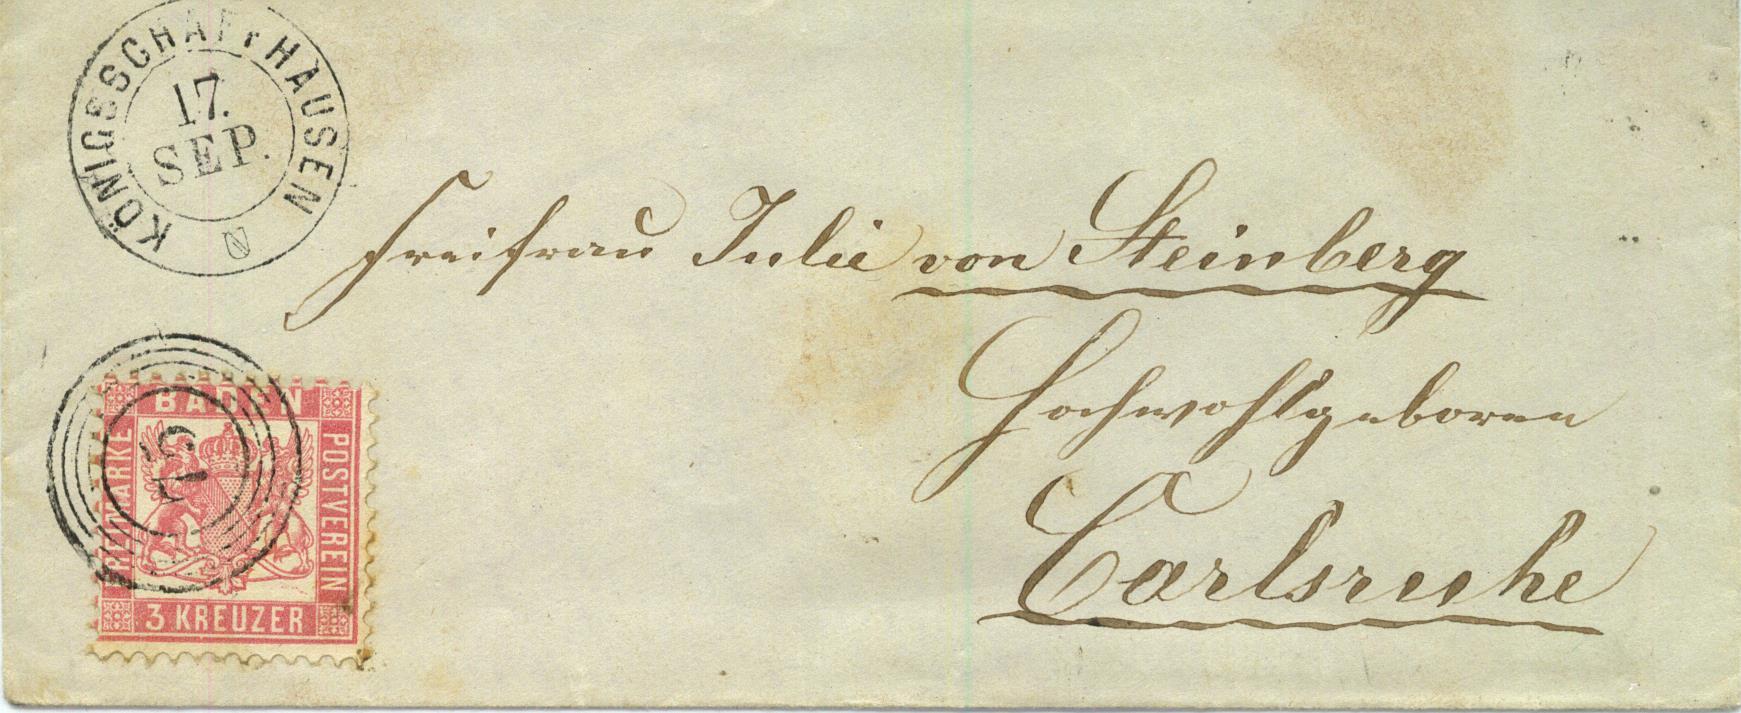 KÖNIGSSCHAFFHAUSEN
17.
SEP.
Freifrau Julie von Steinberg
Hochwohlgeboren
Carlsruhe
BADEN
FREIMARKE
POSTVEREIN
3 KREUZER